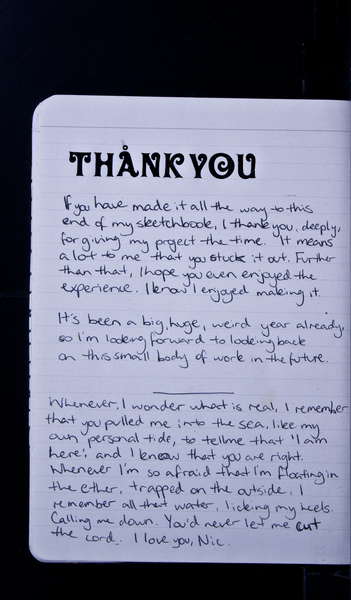 THANK YOU
If you have made it all the way to this
end of my sketchbook, I thank you, deeply,
for giving my project the time. It means
a lot to me that you stuck it out. Further
than that, I hope you even enjoyed the
experience. I know I enjoyed making it.
It's been a big, huge, weird year already,
so I'm looking forward to looking back
on this small body of work in the future.
Whenever I wonder what is real, I remember
that you pulled me into the sea, like my
own personal tide, to tell me that 'I am
here', and I know that you are right.
Whenever I'm so afraid that I'm floating in
the ether, trapped on the outside, I
remember all that water, licking my heels.
Calling me down. You'd never let me cut
the cord. I love you, Nic.